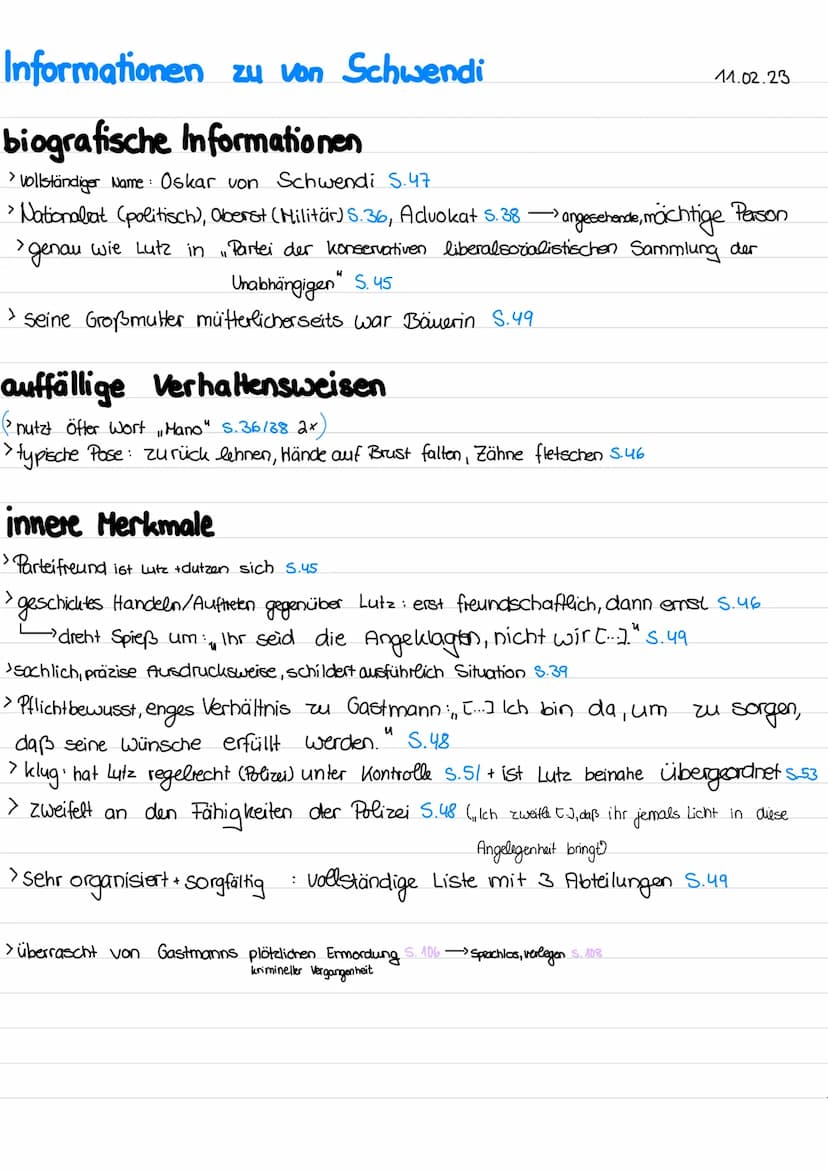 Informationen zu von Schwendi 11.02.23
biografische Informationen
> vollständiger Name: Oskar von Schwendi S.47
> Nationalrat (politisch), Oberst (Militär) S.36, Advokat S.38 → angesehende, mächtige Person
> genau wie Lutz in „Partei der konservativen liberalsozialistischen Sammlung der
Unabhängigen“ S.45
> seine Großmutter mütterlicherseits war Bäuerin S.49
auffällige Verhaltensweisen
(> nutzt öfter Wort „Mano“ S.36/38 2x)
> typische Pose: zurück lehnen, Hände auf Brust falten, Zähne fletschen S.46
innere Merkmale
> Parteifreund ist Lutz + dutzen sich S.45
> geschicktes Handeln/Auftreten gegenüber Lutz: erst freundschaftlich, dann ernst S.46
→ dreht Spieß um: „Ihr seid die Angeklagten, nicht wir [...].“ S.49
> sachlich, präzise Ausdrucksweise, schildert ausführlich Situation S.39
> Pflichtbewusst, enges Verhältnis zu Gastmann: „[...] Ich bin da, um zu sorgen,
daß seine Wünsche erfüllt werden.“ S.48
> klug: hat Lutz regelrecht (Polizei) unter Kontrolle S.51 + ist Lutz beinahe übergeordnet S.53
> zweifelt an den Fähigkeiten der Polizei S.48 („Ich zweifle [..], daß ihr jemals Licht in diese
Angelegenheit bringt“)
> Sehr organisiert + sorgfältig : vollständige Liste mit 3 Abteilungen S.49
> überrascht von Gastmanns plötzlichen Ermordung S.106 → Spachlos, verlegen S.108
krimineller Vergangenheit